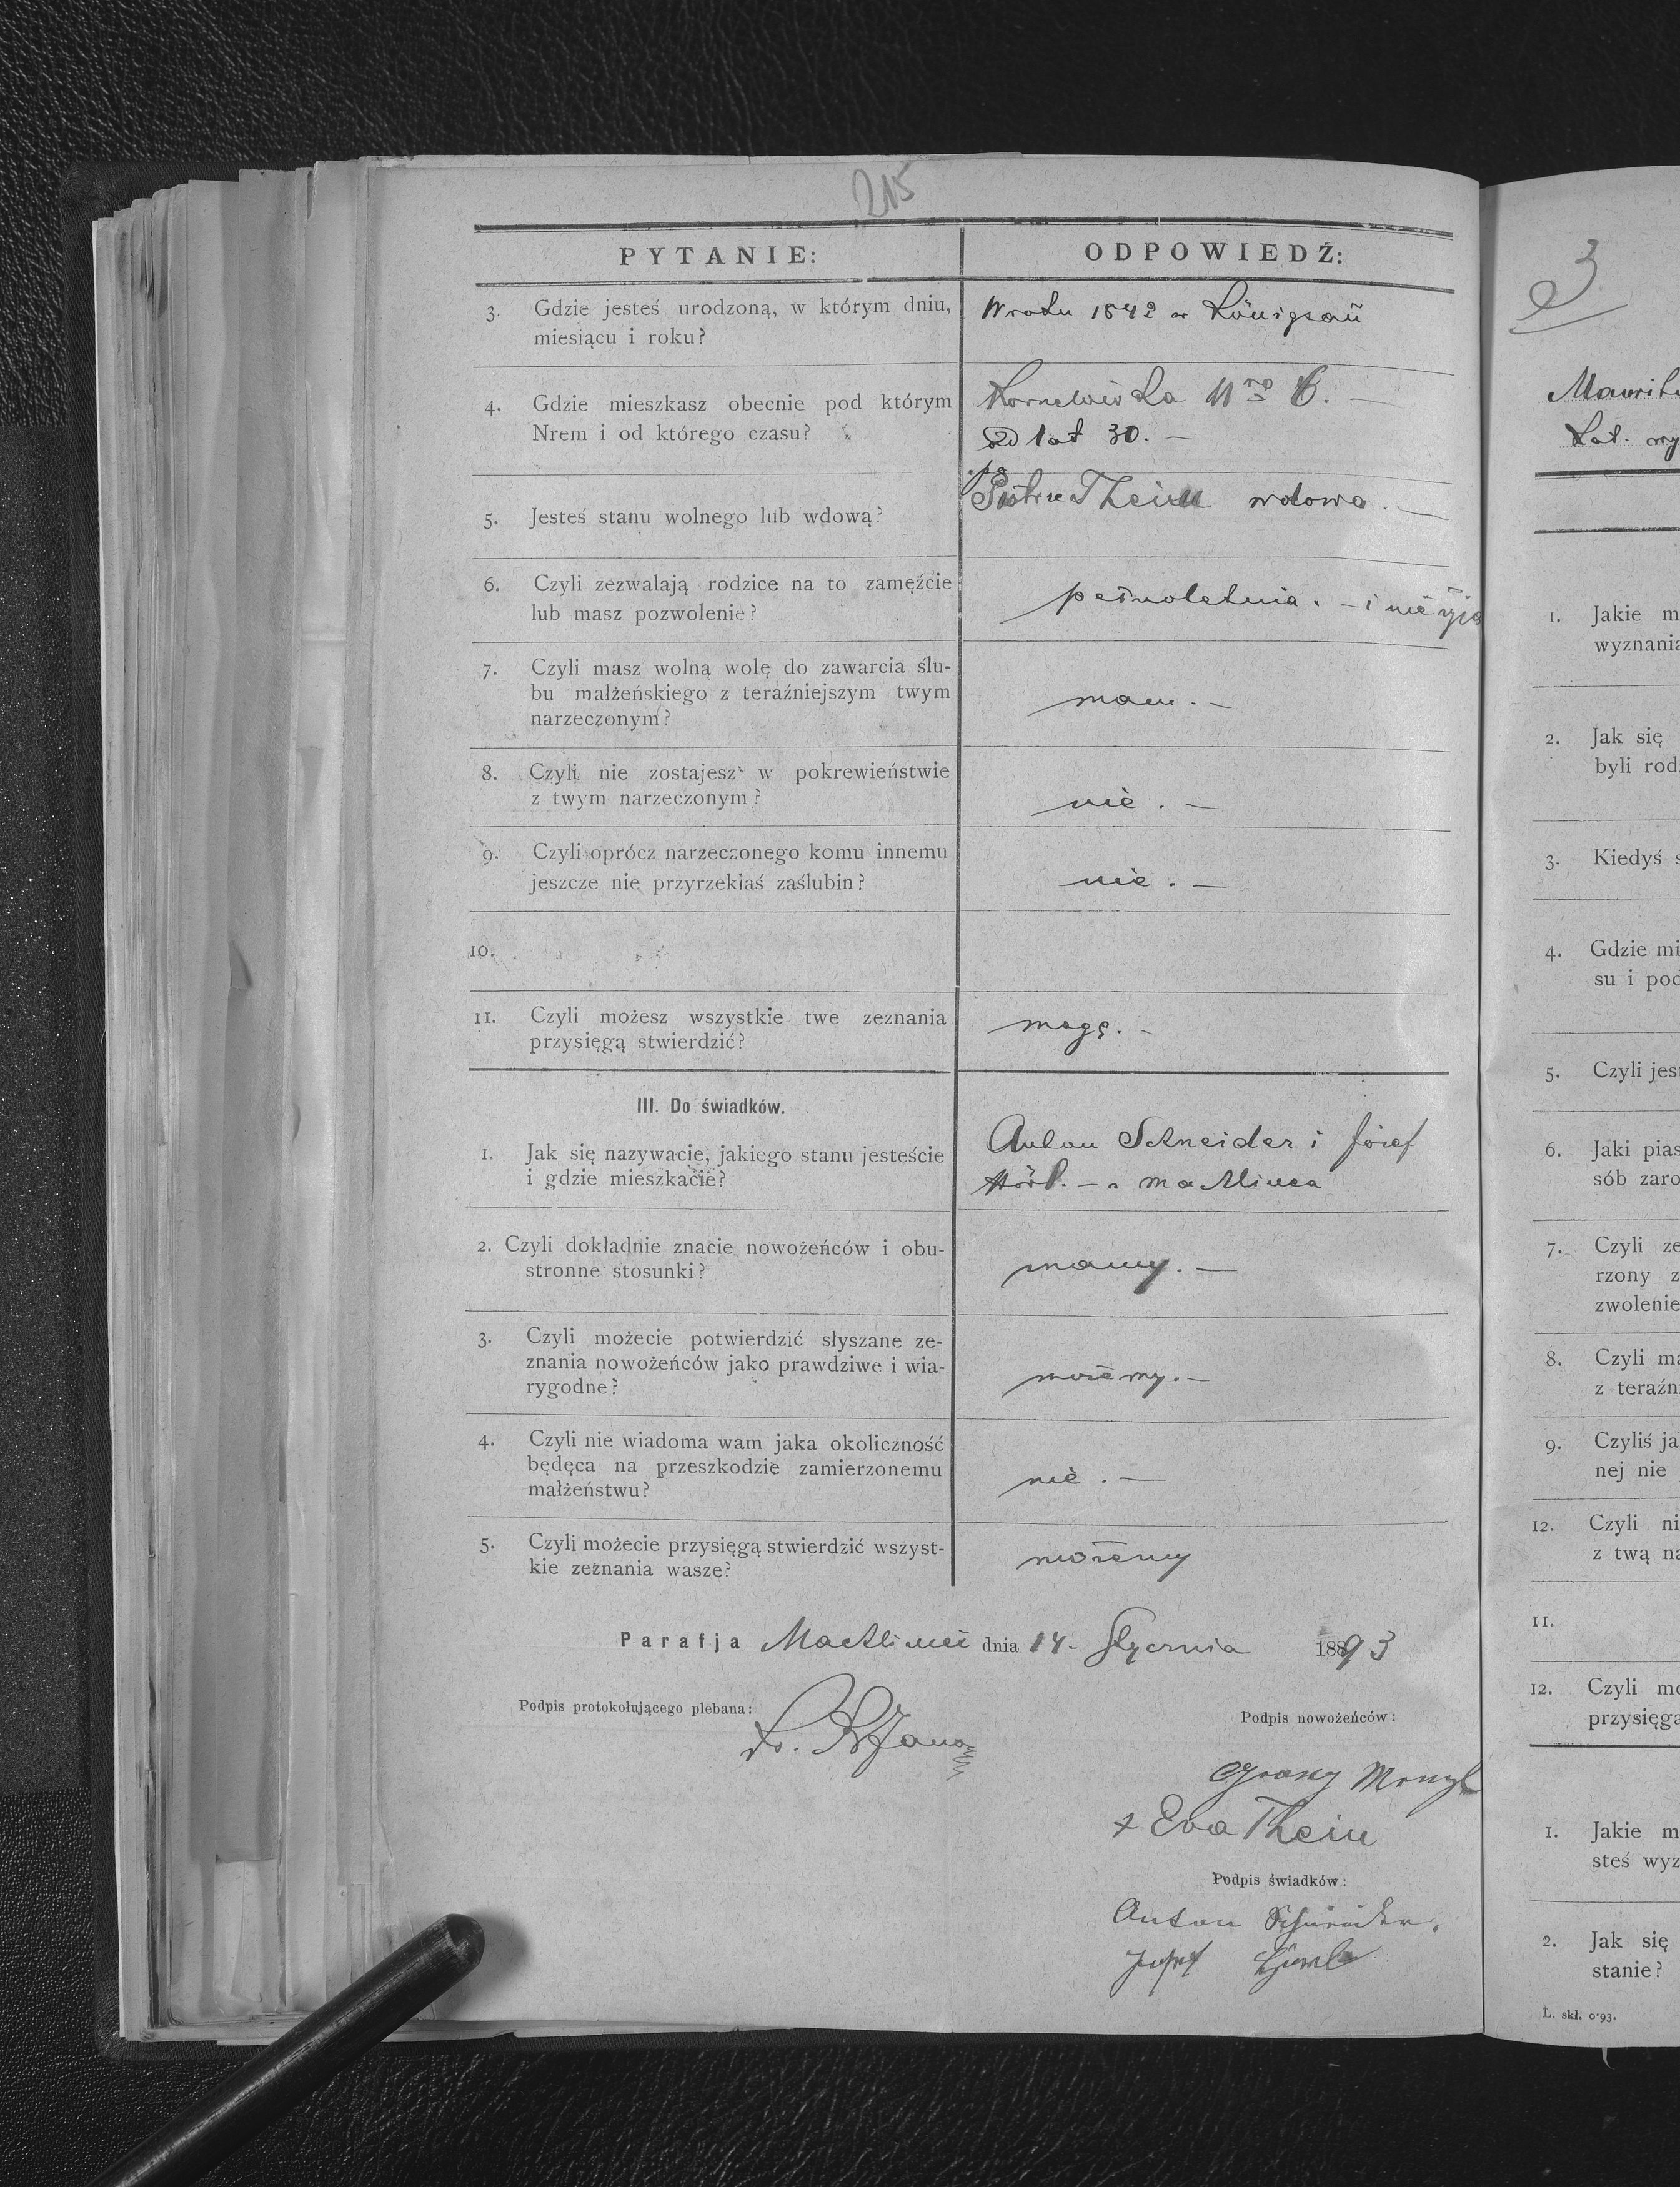 215
PYTANIE:
ODPOWIEDŹ:
3. Gdzie jesteś urodzoną, w którym dniu,
miesiącu i roku?
W roku 1842 w Königsau
4. Gdzie mieszkasz obecnie pod którym
Nrem i od którego czasu?
Nro
od lat 30. —
5. Jesteś stanu wolnego lub wdową?
po
Piotrze Thein wdowa. —
6. Czyli zezwalają rodzice na to zamęźcie
lub masz pozwolenie?
pełnoletnia. — i nie żyją
7. Czyli masz wolną wolę do zawarcia ślu-
bu małżeńskiego z teraźniejszym twym
narzeczonym?
mam. —
8. Czyli nie zostajesz w pokrewieństwie
z twym narzeczonym?
nie. —
9. Czyli oprócz narzeczonego komu innemu
jeszcze nie przyrzekłaś zaślubin?
nie. —
10.
11. Czyli możesz wszystkie twe zeznania
przysięgą stwierdzić?
mogę. —
III. Do świadków.
1. Jak się nazywacie, jakiego stanu jesteście
i gdzie mieszkacie?
Anton Schneider i Józef
2. Czyli dokładnie znacie nowożeńców i obu-
stronne stosunki?
znamy. —
3. Czyli możecie potwierdzić słyszane ze-
znania nowożeńców jako prawdziwe i wia-
rygodne?
możemy. —
4. Czyli nie wiadoma wam jaka okoliczność
będęca na przeszkodzie zamierzonemu
małżeństwu?
nie. —
5. Czyli możecie przysięgą stwierdzić wszyst-
kie zeznania wasze?
możemy
Parafja Machliniec dnia 14. Stycznia 1893
Podpis protokołującego plebana:
Podpis nowożeńców:
+ Eva Thein
Podpis świadków:
Anton Schneider.
Josef
3
1. Jakie m
wyznania
2. Jak się
byli rod
3. Kiedyś s
4. Gdzie mi
su i pod
5. Czyli jes
6. Jaki pias
sób zaro
7. Czyli ze
rzony z
zwolenie
8. Czyli ma
z teraźn
9. Czyliś ja
nej nie
12. Czyli ni
z twą na
11.
12. Czyli mo
przysięga
1. Jakie m
steś wyz
2. Jak się
stanie?
L. skł. 0·93.